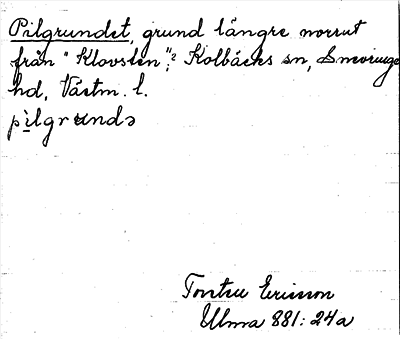 Pilgrundet, grund längre norrut
från "Klovsten",² Kolbäcks sn, Snevringe
hd, Västm. l.
pìlgrundə
Torsten Ericsson
Ulma 881:24a